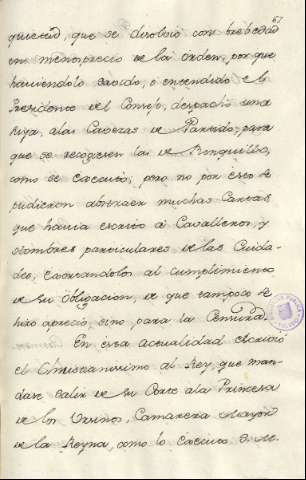 67
quietud, que se disolvió con brebedad
en menosprecio de la orden, por que
haviendolo savido, ó entendido el
Presidente del Consejo, despachó una
suya, a las Cavezas de Partido, para
que se recogiesen las de Ronquillo,
como se executó; pero no por esto se
pudieron abstraer muchas Cartas
que havia escrito á Cavalleros, y
Hombres particulares de las Ciuda-
des, exortandolos al cumplimiento
de su obligacion, de que tampoco se
hizo aprecio, sino para la Censura.
En esta actualidad escrivió
el Christianisimo al Rey, que man-
dase salir de su Corte a la Princesa
de los Ursinos, Camarera Mayor
de la Reyna, como lo executó S. M.